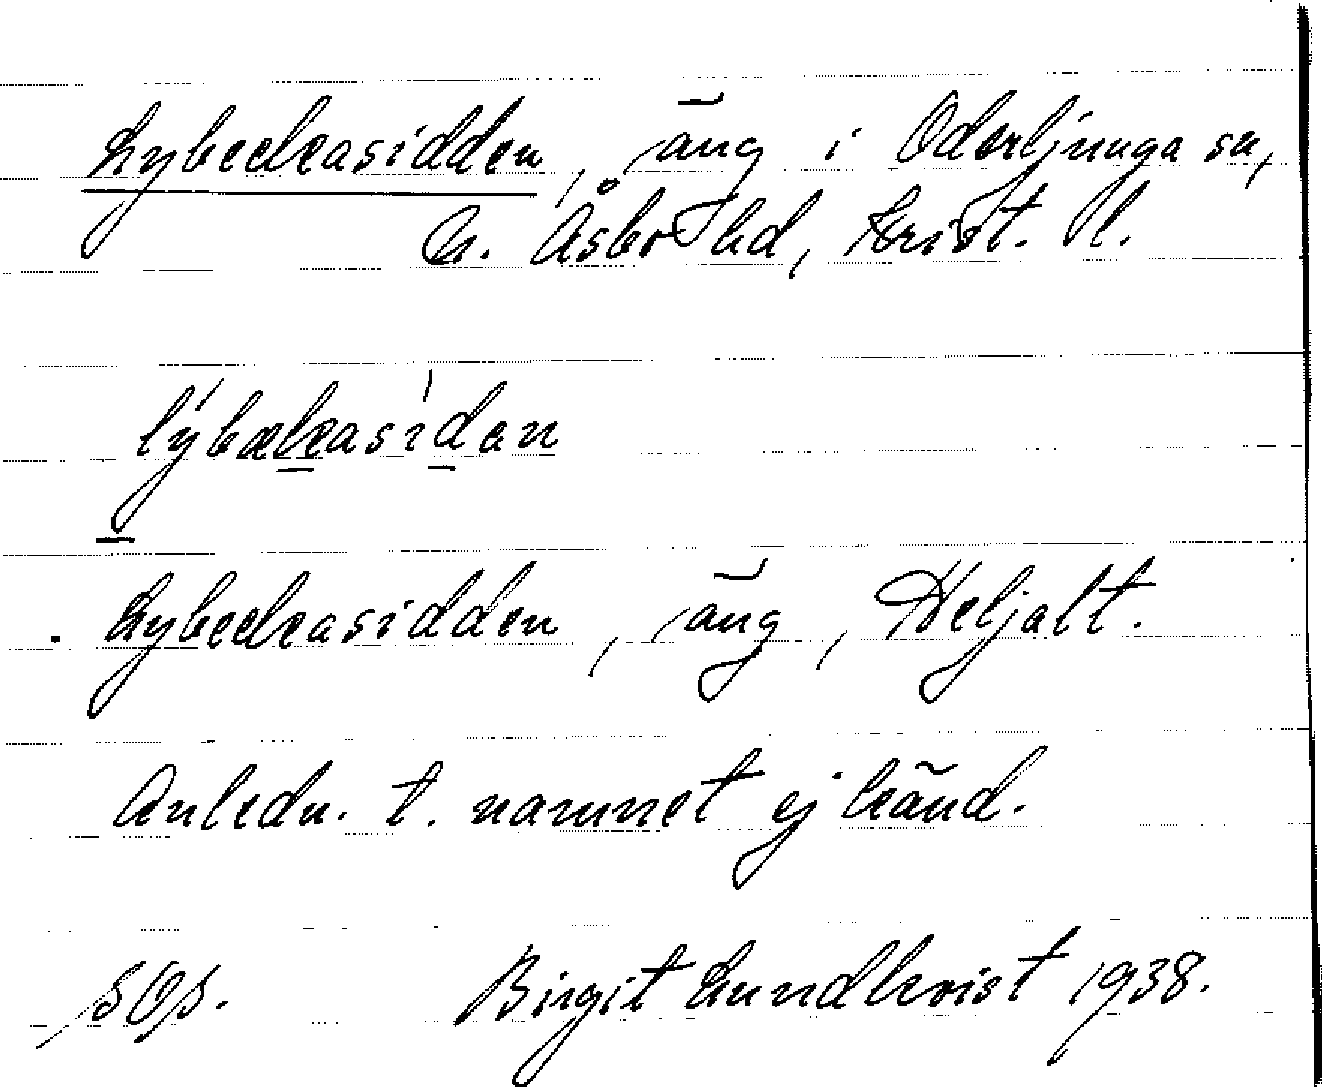 Lybeckasidden, äng i Oderljunga sn,
N. Åsbo hd, Krist. l.
lýbækasídan
Lybeckasidden, äng, Heljalt.
Anledn. t. namnet ej känd.
Birgit Lundkvist 1938.